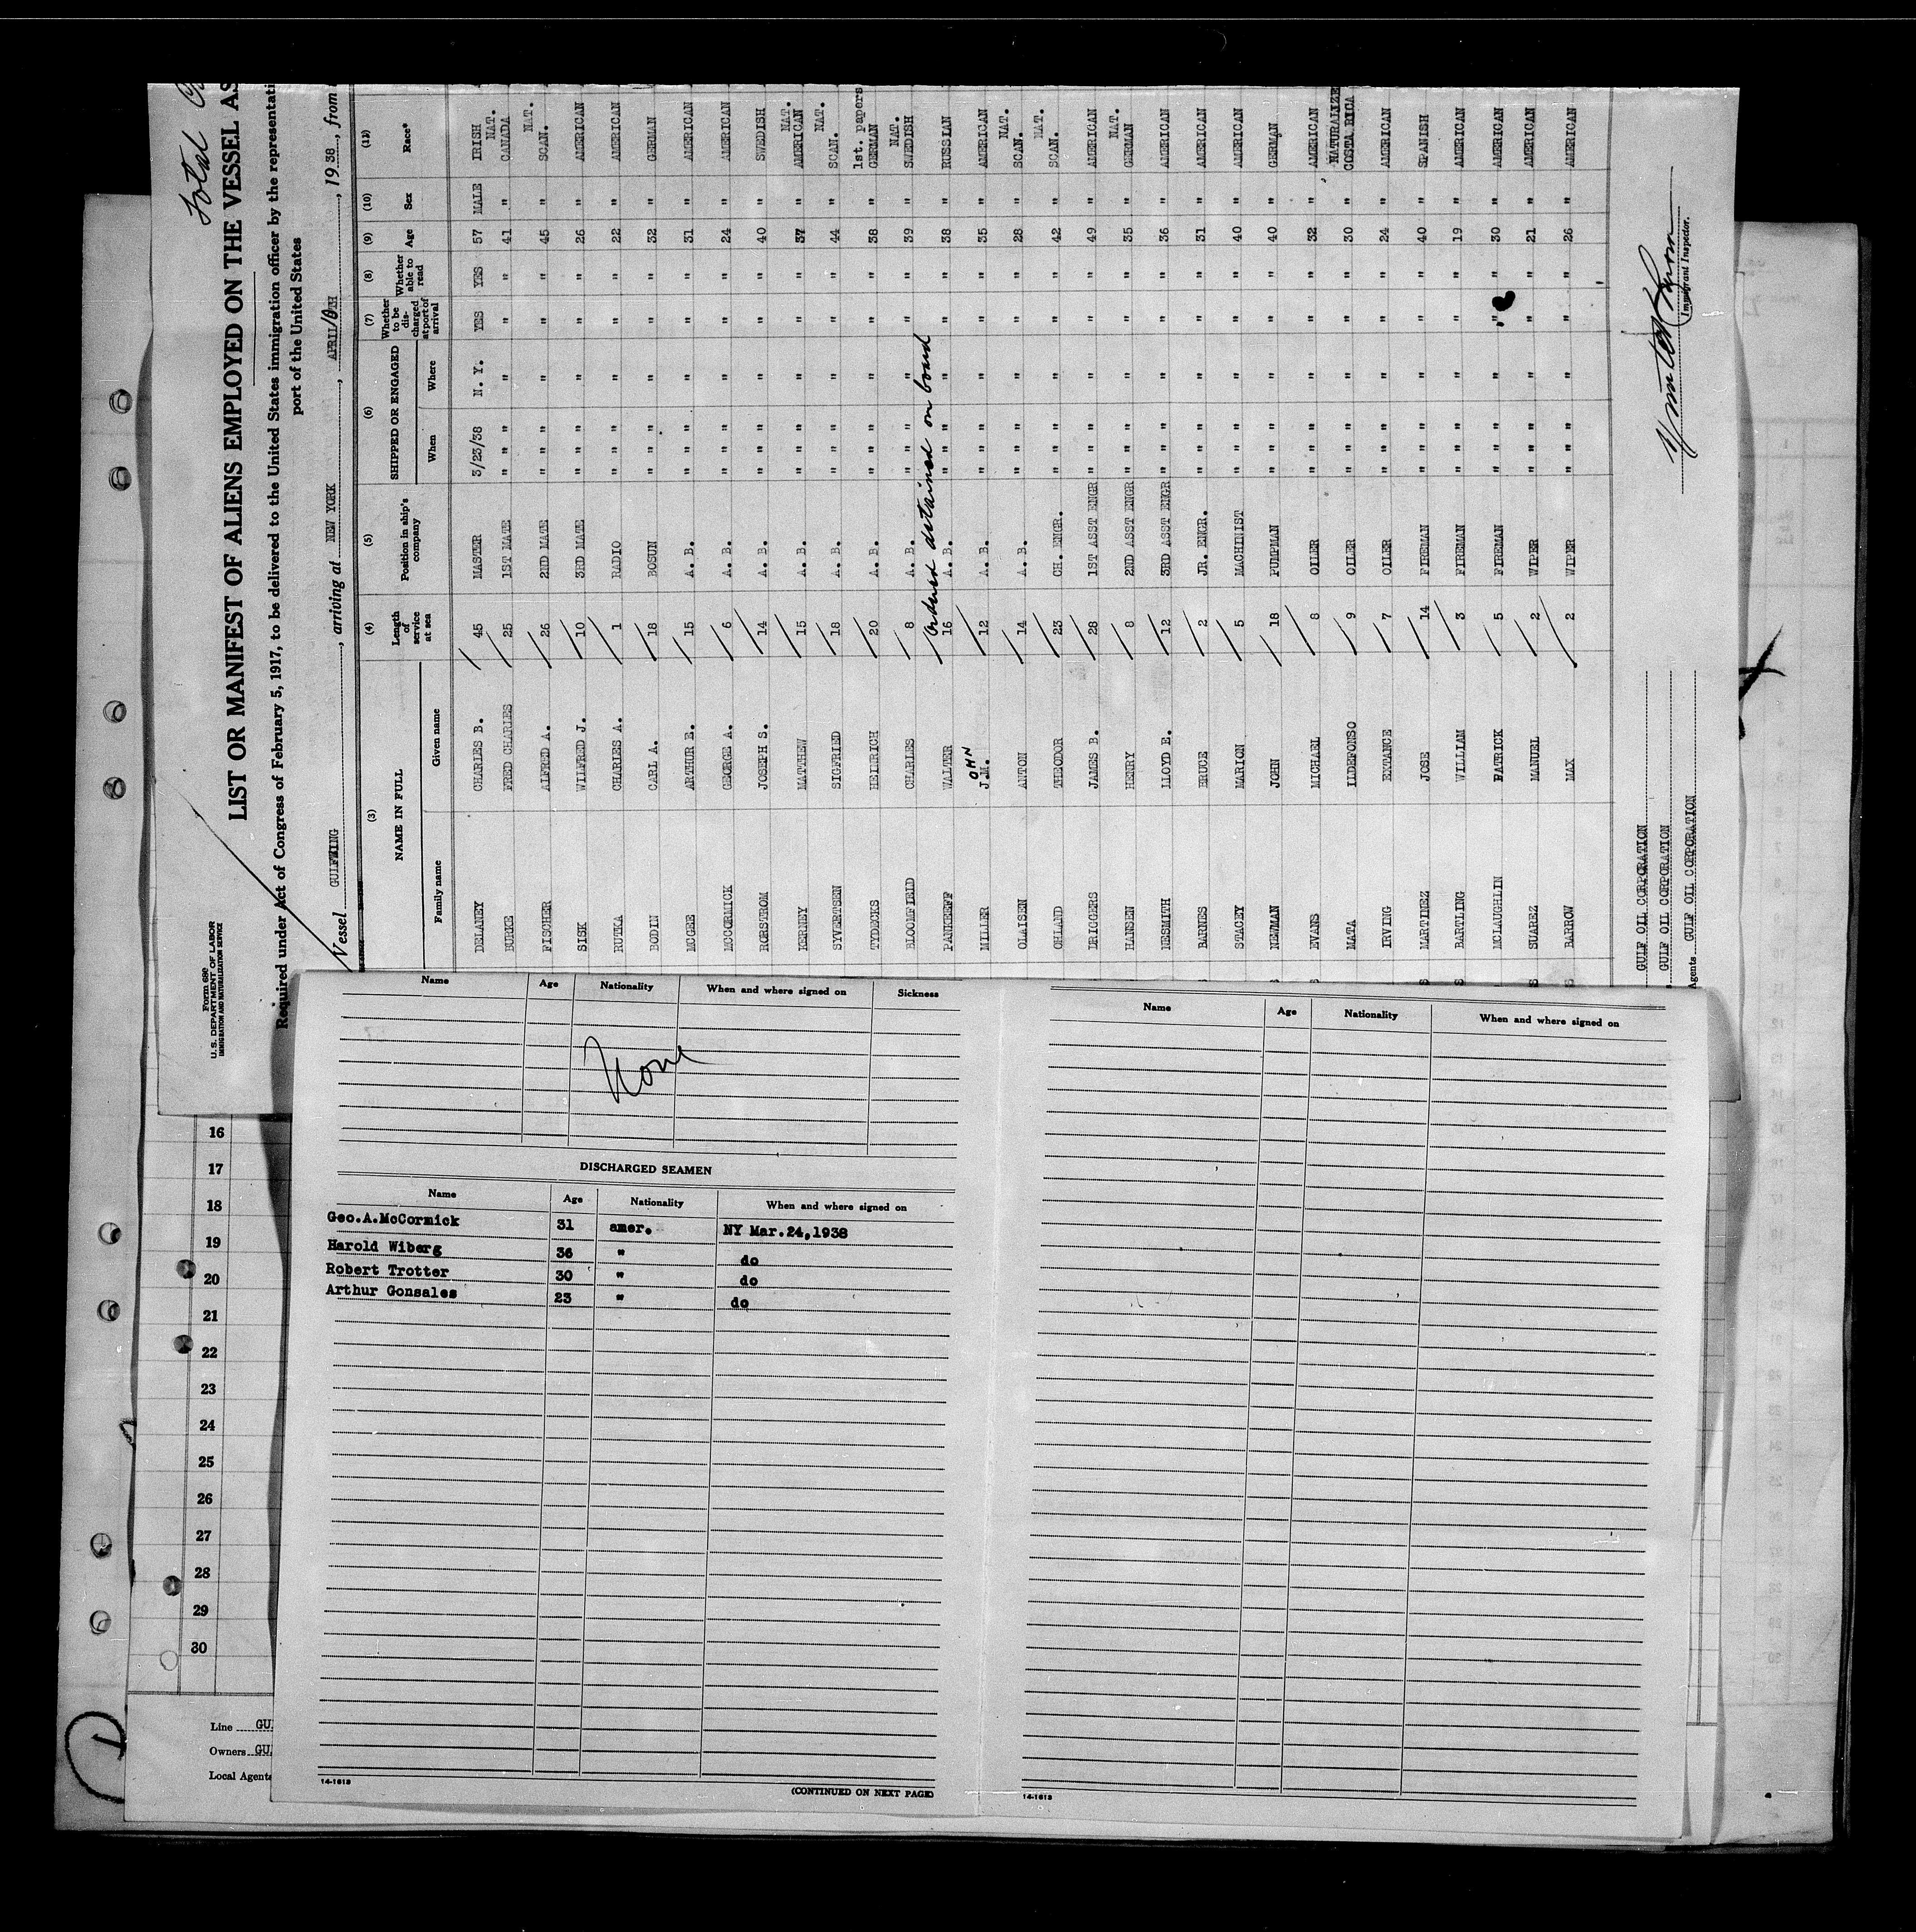 Total
Form 680
U. S. DEPARTMENT OF LABOR
IMMIGRATION AND NATURALIZATION SERVICE
LIST OR MANIFEST OF ALIENS EMPLOYED ON THE VESSEL AS
Required under Act of Congress of February 5, 1917, to be delivered to the United States immigration officer by the representati
port of the United States
Vessel GULFWING, arriving at NEW YORK, APRIL 10TH, 1938, from
(3) (4) (5) (6) (7) (8) (9) (10) (11)
NAME IN FULL Length of service at sea Position in ship's company SHIPPED OR ENGAGED Whether to be discharged at port of arrival Whether able to read Age Sex Race*
Family name Given name When Where
DELANEY CHARLES B. 45 MASTER 3/23/38 N. Y. YES YES 57 MALE IRISH
BURKE FRED CHARLES 25 1ST MATE " " " " " " 41 " NAT. CANADA
FISCHER ALFRED A. 26 2ND MATE " " " " " " 45 " NAT. SCAN.
SISK WILFRED J. 10 3RD MATE " " " " " " 26 " AMERICAN
RUTKA CHARLES A. 1 RADIO " " " " " " 22 " AMERICAN
BODIN CARL A. 18 BOSUN " " " " " " 32 " GERMAN
MCGEE ARTHUR E. 15 A. B. " " " " " " 31 " AMERICAN
MCCORMICK GEORGE A. 6 A. B. " " " " " " 24 " AMERICAN
RORSTROM JOSEPH S. 14 A. B. " " " " " " 40 " SWEDISH
KERNEY MATTHEW 15 A. B. " " " " " " 37 " NAT. AMERICAN
SYVERTSEN SIGFRIED 18 A. B. " " " " " " 44 " NAT. SCAN.
TYDECKS HEINRICH 20 A. B. " " " " " " 38 " 1st. papers GERMAN
BLOOMFIELD CHARLES 8 A. B. " " " " " " 39 " NAT. SWEDISH
Ordered detained on board
PANKEEFF WALTER 16 A. B. " " " " " " 38 " RUSSIAN
MILLER J.M. OHN 12 A. B. " " " " " " 35 " AMERICAN
OLAISEN ANTON 14 A. B. " " " " " " 28 " NAT. SCAN.
OHLAND THEODOR 23 CH. ENGR. " " " " " " 42 " NAT. SCAN.
DRIGGERS JAMES B. 28 1ST ASST ENGR " " " " " " 49 " AMERICAN
HANSEN HENRY 8 2ND ASST ENGR " " " " " " 35 " NAT. GERMAN
NESMITH LLOYD E. 12 3RD ASST ENGR " " " " " " 36 " AMERICAN
BARNES BRUCE 2 JR. ENGR. " " " " " " 31 " AMERICAN
STACEY MARION 5 MACHINIST " " " " " " 40 " AMERICAN
NEWMAN JOHN 18 PUMPMAN " " " " " " 40 " GERMAN
EVANS MICHAEL 8 OILER " " " " " " 32 " AMERICAN
MATA ILDEFONSO 9 OILER " " " " " " 30 " NATURALIZE COSTA RICA
IRVING EXTANCE 7 OILER " " " " " " 24 " AMERICAN
MARTINEZ JOSE 14 FIREMAN " " " " " " 40 " SPANISH
BARTLING WILLIAM 3 FIREMAN " " " " " " 19 " AMERICAN
MCLAUGHLIN PATRICK 5 FIREMAN " " " " " " 30 " AMERICAN
SUAREZ MANUEL 2 WIPER " " " " " " 21 " AMERICAN
BARROW MAX 2 WIPER " " " " " " 26 " AMERICAN
GULF OIL CORPORATION
GULF OIL CORPORATION
Agents GULF OIL CORPORATION
Immigrant Inspector.
Name Age Nationality When and where signed on Sickness
None
DISCHARGED SEAMEN
Name Age Nationality When and where signed on
Geo.A.McCormick 31 amer. NY Mar.24,1938
Harold Wiberg 36 " do
Robert Trotter 30 " do
Arthur Gonsales 23 " do
14-1613
(CONTINUED ON NEXT PAGE)
Name Age Nationality When and where signed on
14-1613
16
17
18
19
20
21
22
23
24
25
26
27
28
29
30
Line GU
Owners GU
Local Agents
D